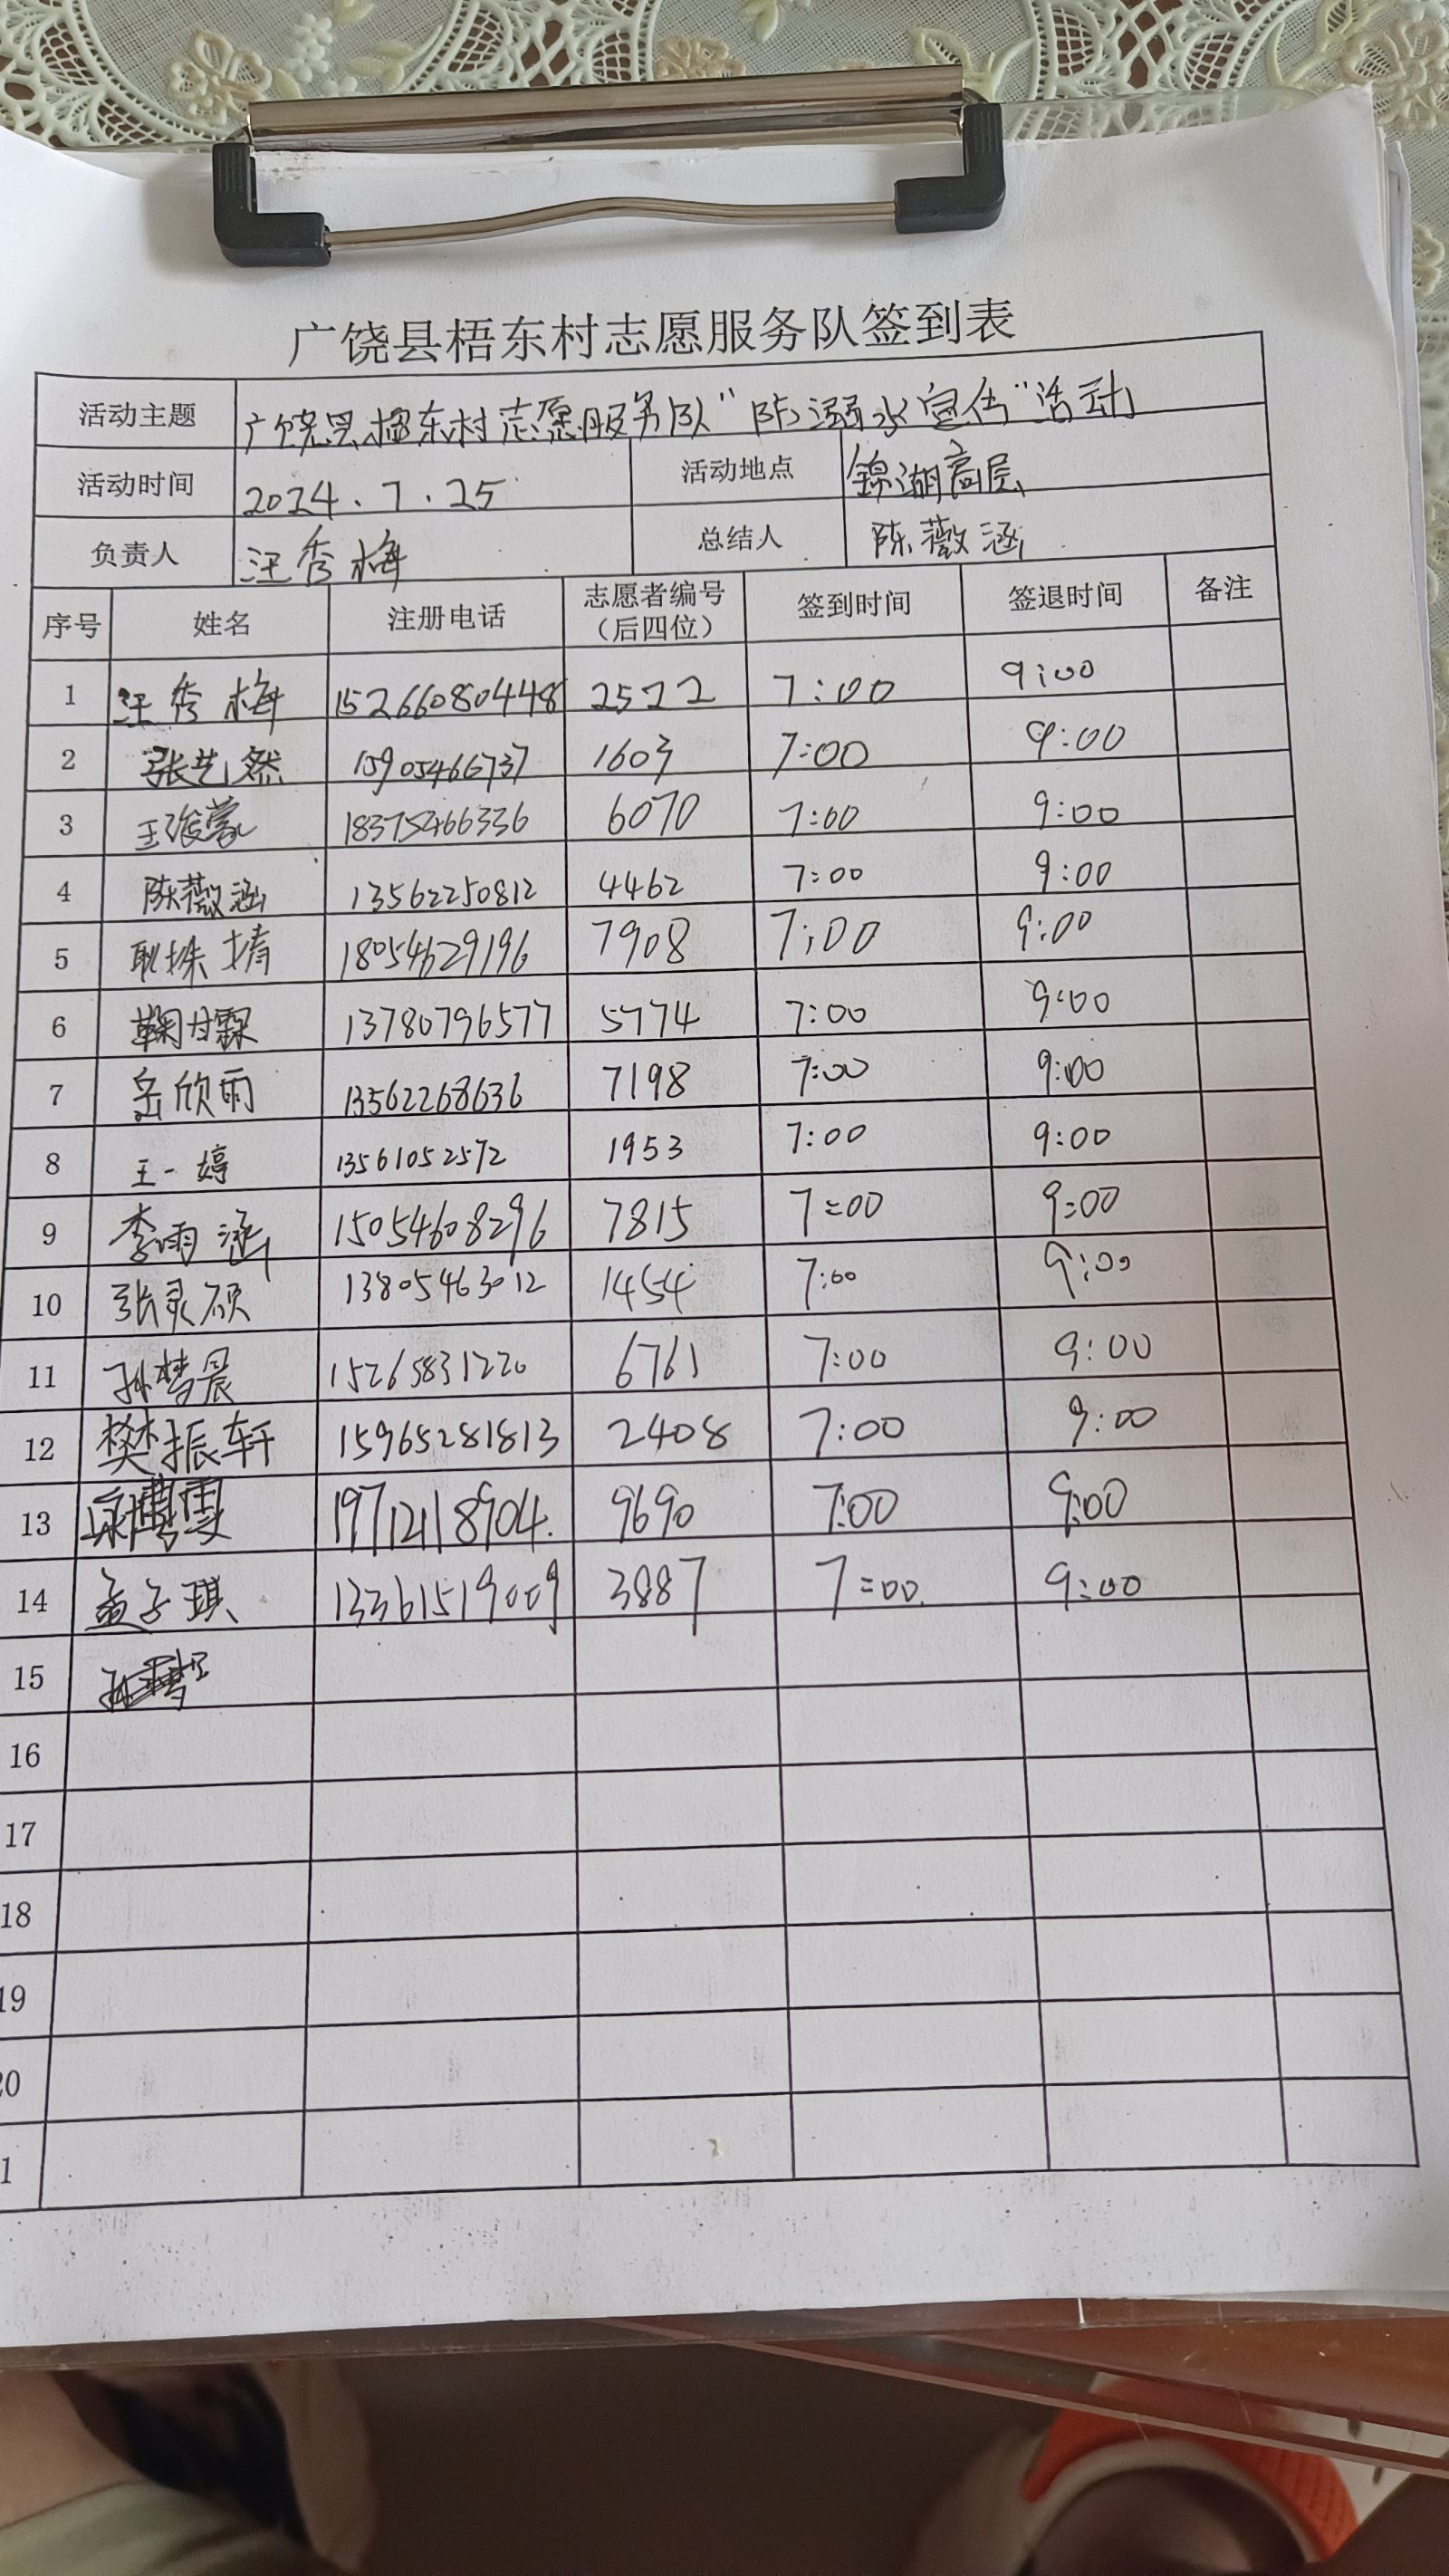 广饶县梧东村志愿服务队签到表
活动主题 广饶县梧东村志愿服务队“防溺水宣传”活动
活动时间 2024.7.25 活动地点 锦湖高层
负责人 汪秀梅 总结人 陈薇涵
序号 姓名 注册电话 志愿者编号（后四位） 签到时间 签退时间 备注
1 汪秀梅 15266080448 2522 7:00 9:00
2 张艺然 15905466737 1603 7:00 9:00
3 18375466336 6070 7:00 9:00
4 陈薇涵 13562250812 4462 7:00 9:00
5 18054629196 7908 7:00 9:00
6 鞠甘霖 13780796577 5774 7:00 9:00
7 岳欣雨 13562268636 7198 7:00 9:00
8 王一婷 13561052572 1953 7:00 9:00
9 李雨涵 15054608296 7815 7:00 9:00
10 张灵硕 13805463012 1454 7:00 9:00
11 孙梦晨 15265831220 6761 7:00 9:00
12 樊振轩 15965281813 2408 7:00 9:00
13 19712118904. 9690 7:00 9:00
14 孟子琪 13361519009 3887 7:00 9:00
15
16
17
18
19
20
1